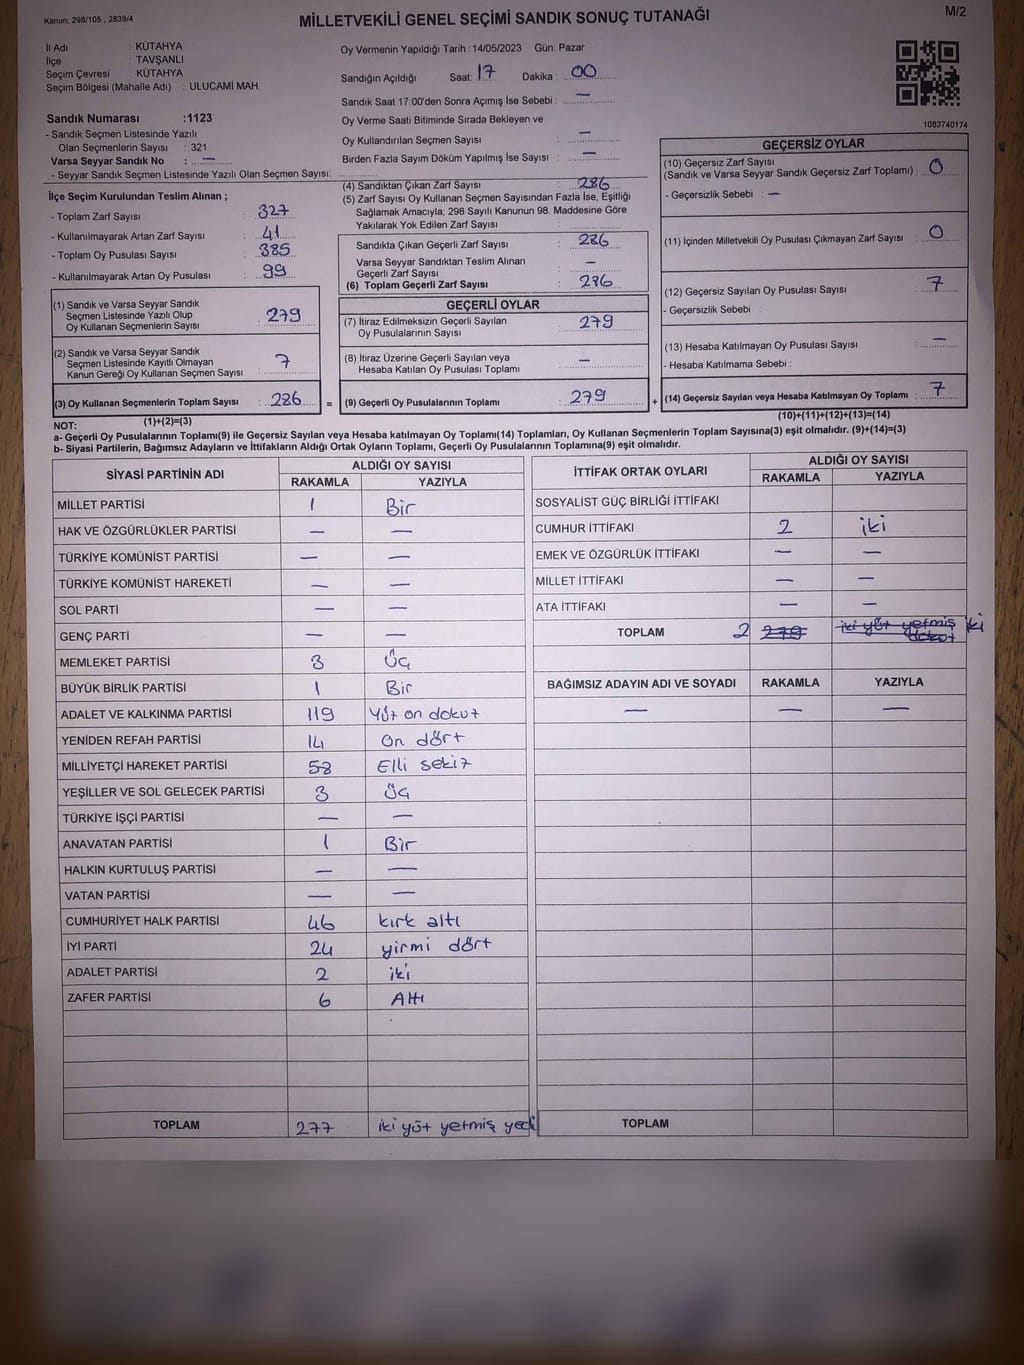 Kanun; 298/105 , 2839/4
MİLLETVEKİLİ GENEL SEÇİMİ SANDIK SONUÇ TUTANAĞI
M/2
İl Adı : KÜTAHYA
İlçe : TAVŞANLI
Seçim Çevresi : KÜTAHYA
Seçim Bölgesi (Mahalle Adı) : ULUCAMİ MAH.
Sandık Numarası :1123
- Sandık Seçmen Listesinde Yazılı
Olan Seçmenlerin Sayısı : 321
Varsa Seyyar Sandık No : —
- Seyyar Sandık Seçmen Listesinde Yazılı Olan Seçmen Sayısı:
Oy Vermenin Yapıldığı Tarih :14/05/2023 Gün: Pazar
Sandığın Açıldığı Saat: 17 Dakika : 00
Sandık Saat 17:00'den Sonra Açımış İse Sebebi : —
Oy Verme Saati Bitiminde Sırada Bekleyen ve
Oy Kullandırılan Seçmen Sayısı : —
Birden Fazla Sayım Döküm Yapılmış İse Sayısı : —
1083740174
İlçe Seçim Kurulundan Teslim Alınan ;
- Toplam Zarf Sayısı : 327
- Kullanılmayarak Artan Zarf Sayısı : 41
- Toplam Oy Pusulası Sayısı : 385
- Kullanılmayarak Artan Oy Pusulası : 99
(1) Sandık ve Varsa Seyyar Sandık
Seçmen Listesinde Yazılı Olup
Oy Kullanan Seçmenlerin Sayısı : 279
(2) Sandık ve Varsa Seyyar Sandık
Seçmen Listesinde Kayıtlı Olmayan
Kanun Gereği Oy Kullanan Seçmen Sayısı : 7
(3) Oy Kullanan Seçmenlerin Toplam Sayısı : 286 =
(1)+(2)=(3)
(4) Sandıktan Çıkan Zarf Sayısı : 286
(5) Zarf Sayısı Oy Kullanan Seçmen Sayısından Fazla İse, Eşitliği
Sağlamak Amacıyla; 298 Sayılı Kanunun 98. Maddesine Göre
Yakılarak Yok Edilen Zarf Sayısı :
Sandıkta Çıkan Geçerli Zarf Sayısı : 286
Varsa Seyyar Sandıktan Teslim Alınan
Geçerli Zarf Sayısı : —
(6) Toplam Geçerli Zarf Sayısı : 286
GEÇERLİ OYLAR
(7) İtiraz Edilmeksizin Geçerli Sayılan
Oy Pusulalarının Sayısı : 279
(8) İtiraz Üzerine Geçerli Sayılan veya
Hesaba Katılan Oy Pusulası Toplamı : —
(9) Geçerli Oy Pusulalarının Toplamı : 279 +
GEÇERSİZ OYLAR
(10) Geçersiz Zarf Sayısı
(Sandık ve Varsa Seyyar Sandık Geçersiz Zarf Toplamı) : 0
- Geçersizlik Sebebi : —
(11) İçinden Milletvekili Oy Pusulası Çıkmayan Zarf Sayısı : 0
(12) Geçersiz Sayılan Oy Pusulası Sayısı : 7
- Geçersizlik Sebebi :
(13) Hesaba Katılmayan Oy Pusulası Sayısı : —
- Hesaba Katılmama Sebebi :
(14) Geçersiz Sayılan veya Hesaba Katılmayan Oy Toplamı : 7
(10)+(11)+(12)+(13)=(14)
NOT:
a- Geçerli Oy Pusulalarının Toplamı(9) ile Geçersiz Sayılan veya Hesaba katılmayan Oy Toplamı(14) Toplamları, Oy Kullanan Seçmenlerin Toplam Sayısına(3) eşit olmalıdır. (9)+(14)=(3)
b- Siyasi Partilerin, Bağımsız Adayların ve İttifakların Aldığı Ortak Oyların Toplamı, Geçerli Oy Pusulalarının Toplamına(9) eşit olmalıdır.
SİYASİ PARTİNİN ADI ALDIĞI OY SAYISI
RAKAMLA YAZIYLA
MİLLET PARTİSİ 1 Bir
HAK VE ÖZGÜRLÜKLER PARTİSİ — —
TÜRKİYE KOMÜNİST PARTİSİ — —
TÜRKİYE KOMÜNİST HAREKETİ — —
SOL PARTİ — —
GENÇ PARTİ — —
MEMLEKET PARTİSİ 3 Üç
BÜYÜK BİRLİK PARTİSİ 1 Bir
ADALET VE KALKINMA PARTİSİ 119 Yüz on dokuz
YENİDEN REFAH PARTİSİ 14 On dört
MİLLİYETÇİ HAREKET PARTİSİ 58 Elli sekiz
YEŞİLLER VE SOL GELECEK PARTİSİ 3 Üç
TÜRKİYE İŞÇİ PARTİSİ — —
ANAVATAN PARTİSİ 1 Bir
HALKIN KURTULUŞ PARTİSİ — —
VATAN PARTİSİ — —
CUMHURİYET HALK PARTİSİ 46 kırk altı
İYİ PARTİ 24 yirmi dört
ADALET PARTİSİ 2 iki
ZAFER PARTİSİ 6 Altı
TOPLAM 277 iki yüz yetmiş yedi
İTTİFAK ORTAK OYLARI ALDIĞI OY SAYISI
RAKAMLA YAZIYLA
SOSYALİST GÜÇ BİRLİĞİ İTTİFAKI
CUMHUR İTTİFAKI 2 iki
EMEK VE ÖZGÜRLÜK İTTİFAKI — —
MİLLET İTTİFAKI — —
ATA İTTİFAKI — —
TOPLAM 2 279 iki yüz yetmiş dokuz iki
BAĞIMSIZ ADAYIN ADI VE SOYADI RAKAMLA YAZIYLA
— — —
TOPLAM